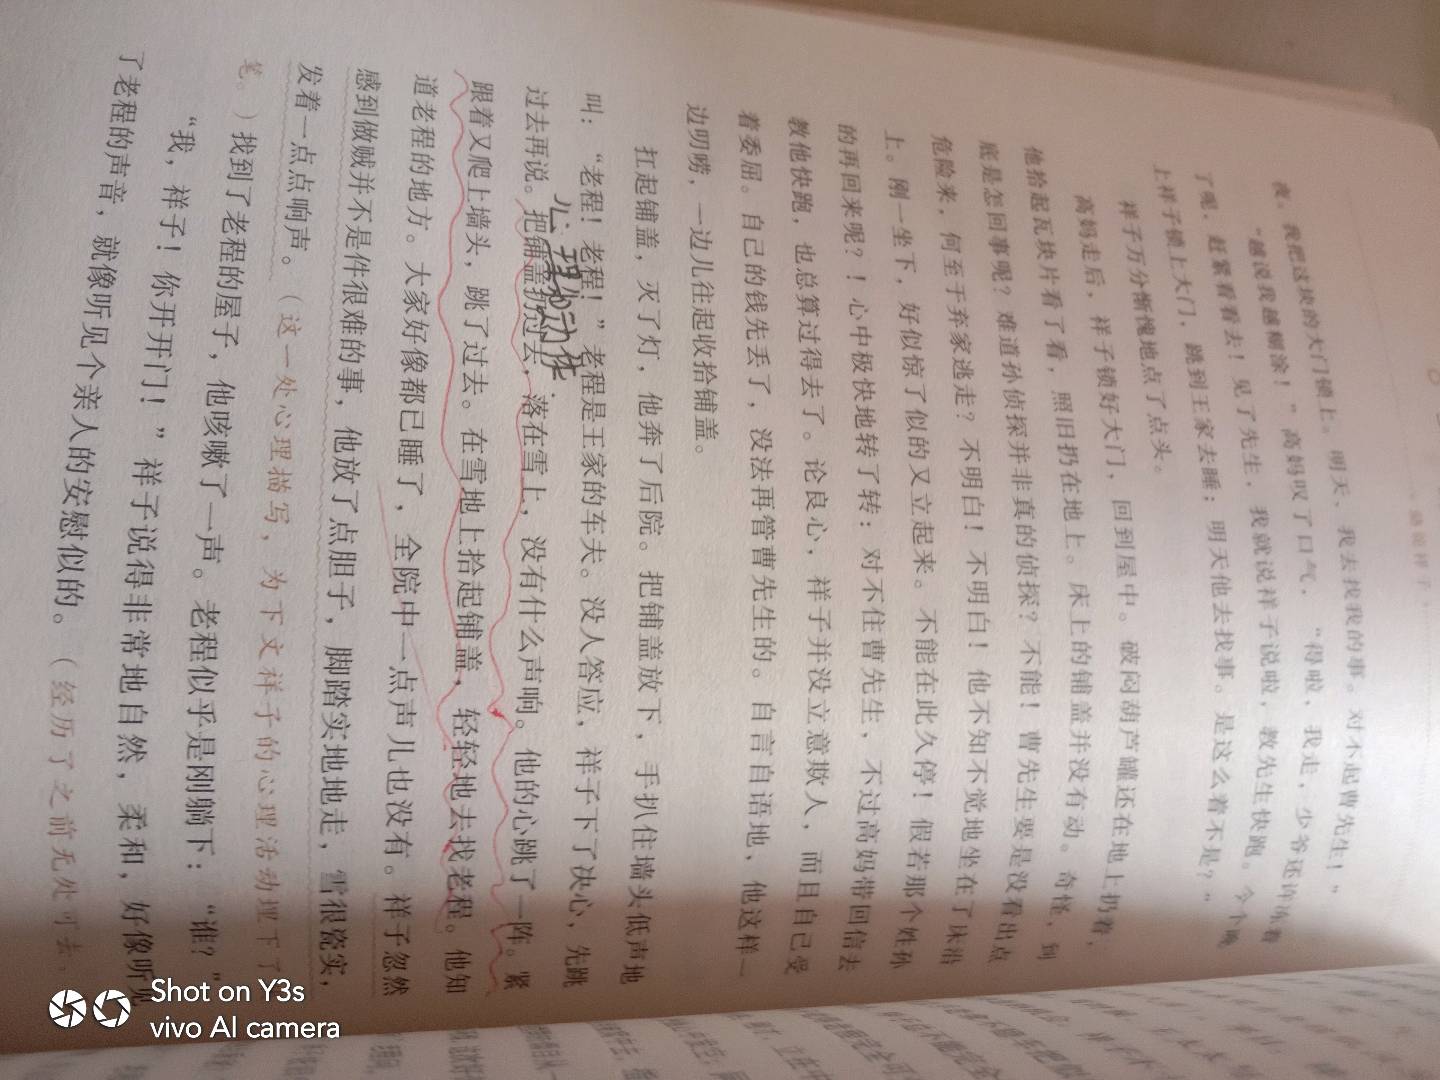 骆驼祥子
夜。我把这块的大门锁上。明天,我去找我的事。对不起曹先生!”
“越说我越糊涂!”高妈叹了口气,“得啦,我走,少爷还许冻着
了呢,赶紧看看去!见了先生,我就说祥子说啦,教先生快跑。今个晚
上祥子锁上大门,跳到王家去睡;明天他去找事。是这么着不是?”
祥子万分惭愧地点了点头。
高妈走后,祥子锁好大门,回到屋中。破闷葫芦罐还在地上扔着,
他拾起瓦块片看了看,照旧扔在地上。床上的铺盖并没有动。奇怪,到
底是怎回事呢?难道孙侦探并非真的侦探?不能!曹先生要是没看出点
危险来,何至于弃家逃走?不明白!不明白!他不知不觉地坐在了床沿
上。刚一坐下,好似惊了似的又立起来。不能在此久停!假若那个姓孙
的再回来呢?!心中极快地转了转:对不住曹先生,不过高妈带回信去
教他快跑,也总算过得去了。论良心,祥子并没立意欺人,而且自己受
着委屈。自己的钱先丢了,没法再管曹先生的。自言自语地,他这样一
边叨唠,一边儿往起收拾铺盖。
扛起铺盖,灭了灯,他奔了后院。把铺盖放下,手扒住墙头低声地
叫:“老程!老程!”老程是王家的车夫。没人答应,祥子下了决心,先跳
心理动作
过去再说。把铺盖扔过去,落在雪上,没有什么声响。他的心跳了一阵。紧
跟着又爬上墙头,跳了过去。在雪地上拾起铺盖,轻轻地去找老程。他知
道老程的地方。大家好像都已睡了,全院中一点声儿也没有。祥子忽然
感到做贼并不是件很难的事,他放了点胆子,脚踏实地地走,雪很瓷实,
发着一点点响声。(这一处心理描写,为下文祥子的心理活动埋下了
笔。)找到了老程的屋子,他咳嗽了一声。老程似乎是刚躺下:“谁?”
“我,祥子!你开开门!”祥子说得非常地自然,柔和,好像听见
了老程的声音,就像听见个亲人的安慰似的。(经历了之前无处可去,
Shot on Y3s
vivo AI camera